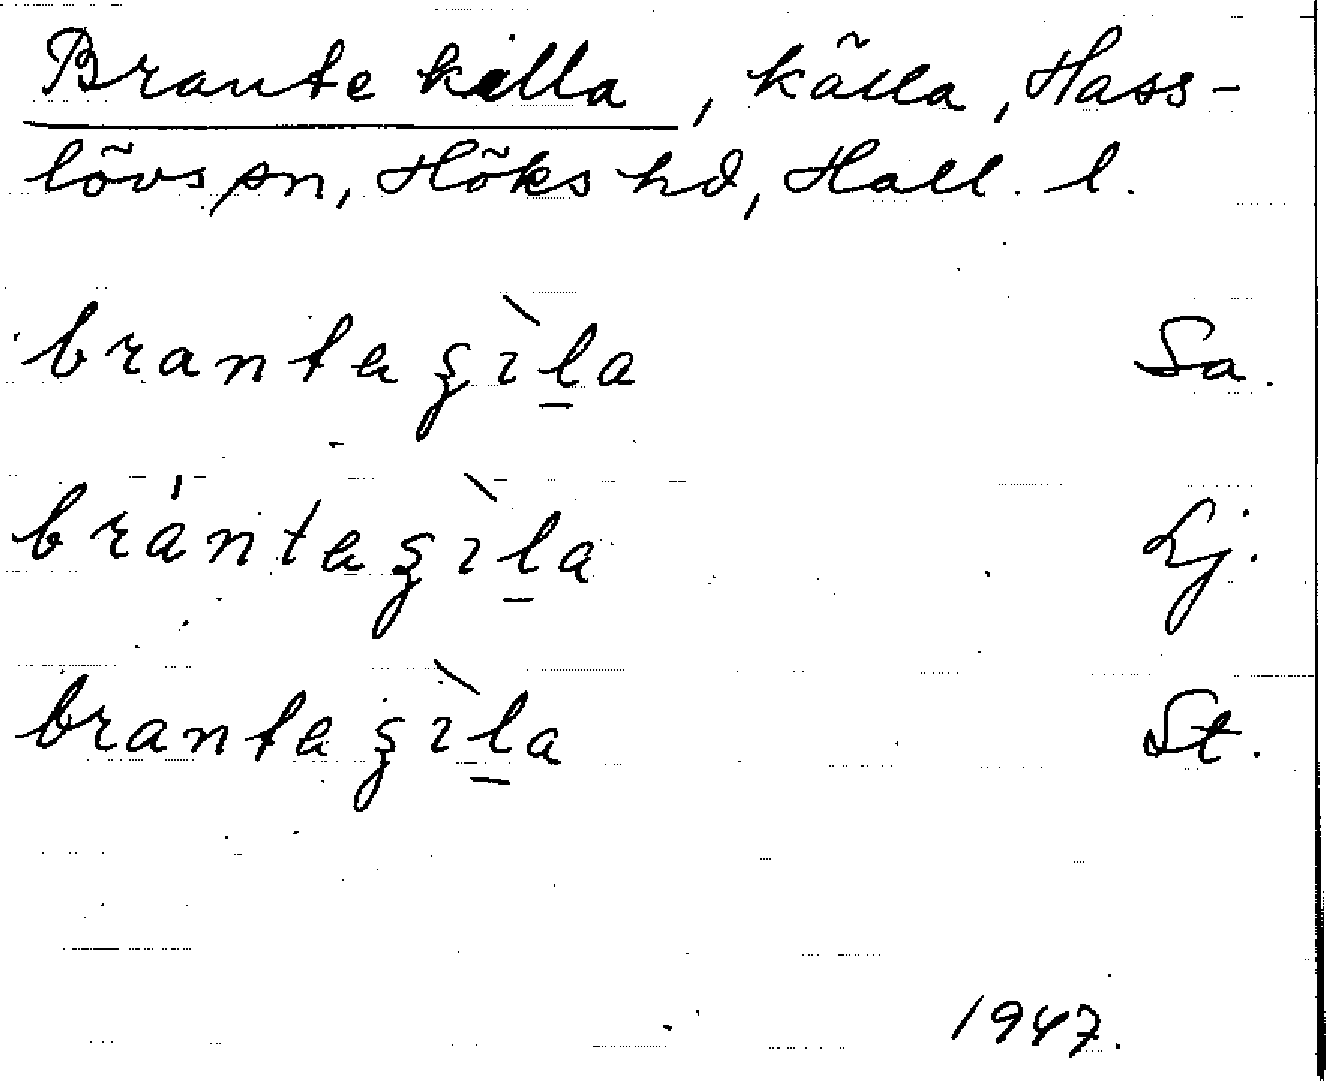 Brante killa, källa, Hass-
lövs sn, Höks hd, Hall. l.
brantaʂɪ̀l̠a Sa.
brántaʂɪ̀l̠a Lj.
brantaʂɪ̀l̠a St.
1947.